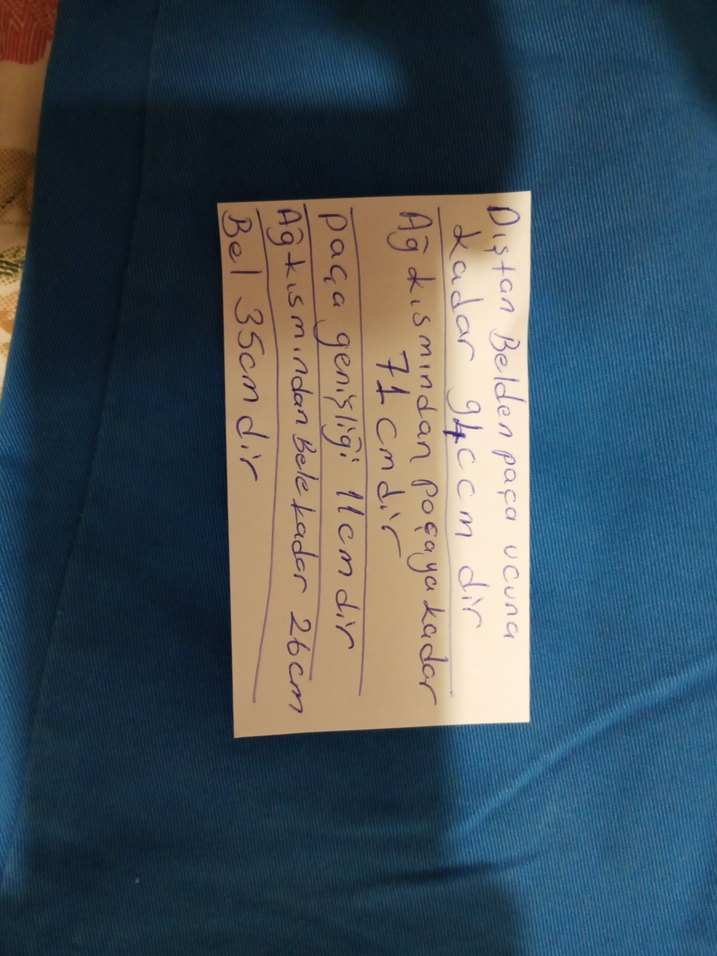 Dıştan Belden paça ucuna
kadar 94ccm dir
Ağ kısmından paçaya kadar
71 cm dir
paça genişliği 11cm dir
Ağ kısmından Bele kadar 26cm
Bel 35cm dir